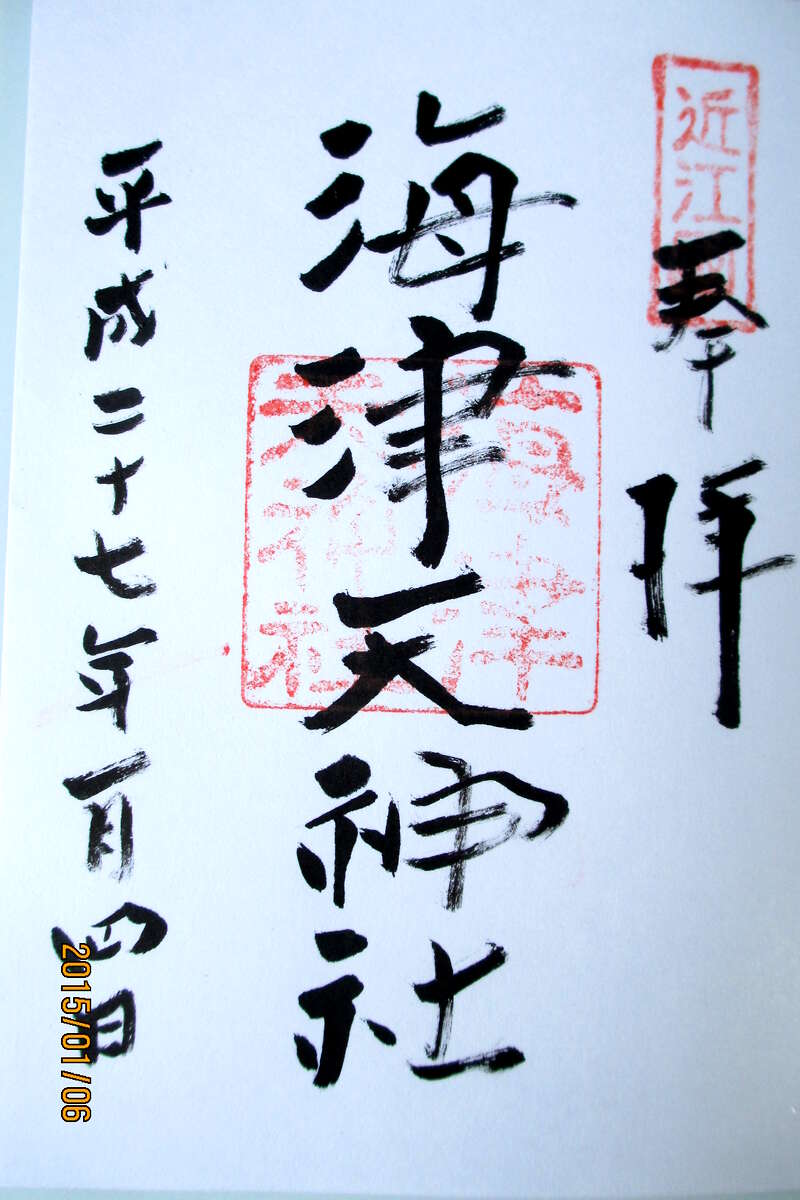 近江国
奉拝
海津天神社
海津
天神社
平成二十七年一月四日
2015/01/06